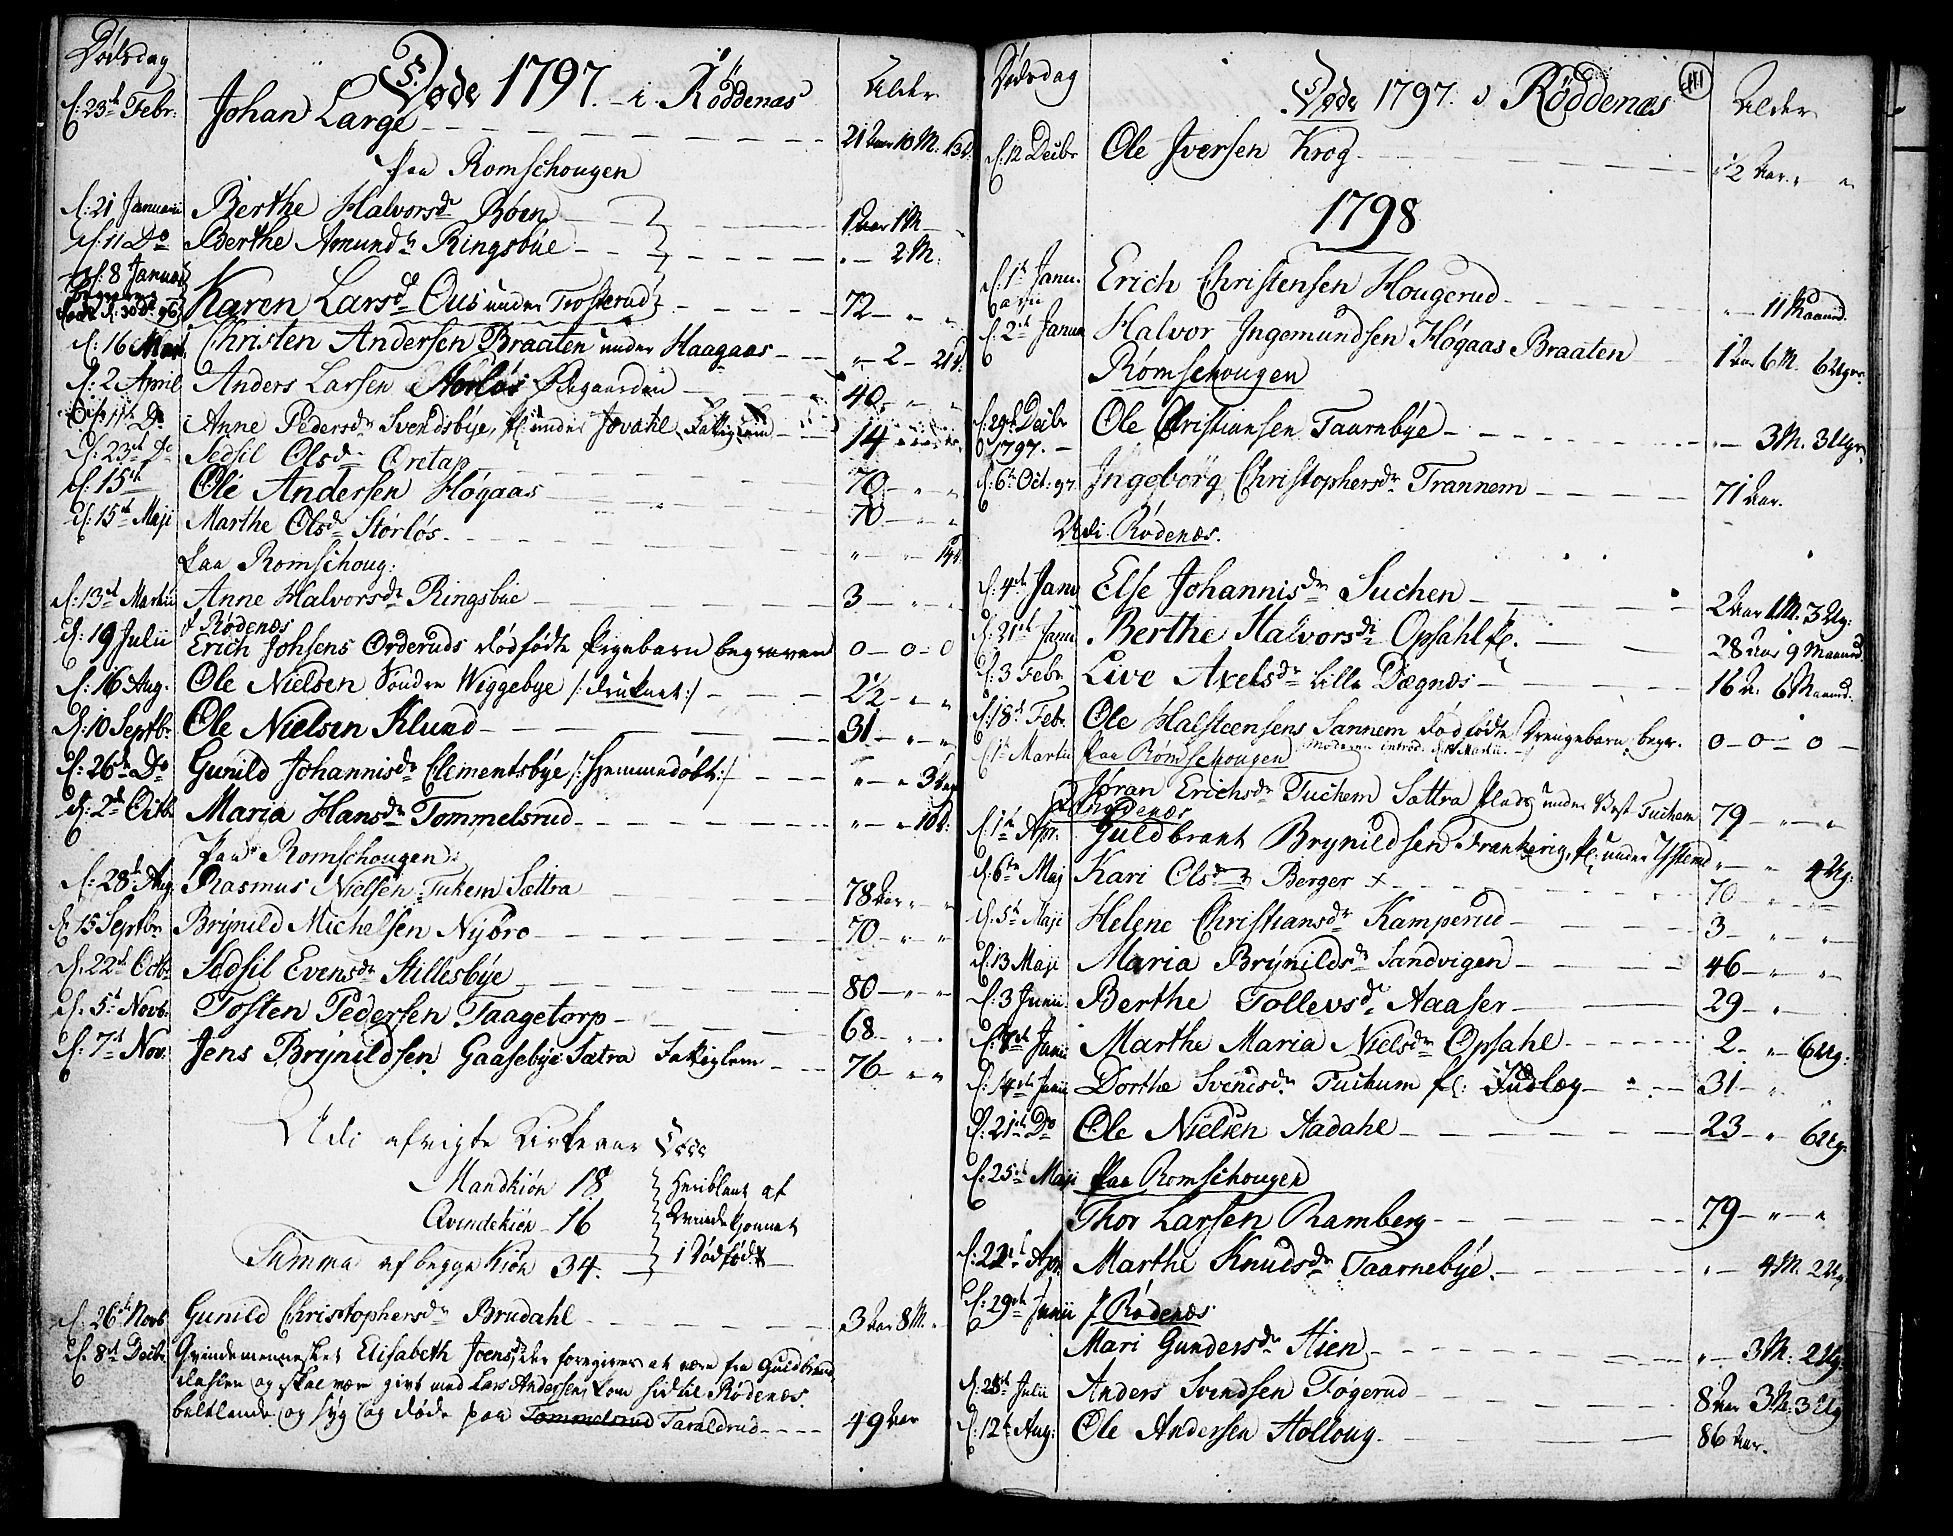 Dødsdag
Døde 1797. i Röddenæs
Alder
d: 23de Febr: Johan Large 21 Aar 10 M: 13 d.
paa Romschougen
d: 21 Januarii Berthe Halvorsdr Böen 1 Aar 1 M
d: 11 Do Berthe Amundsdr Ringsbÿe 2 M:
d: 8 Januar Karen Larsdr Ous under Trosterud 72
d: 16 Mart. Christen Andersen Braaten under Haagaas 2 21 d.
d: 2 April Anders Larsen Storløs Ødegaarden 40
d: 11te Do Anne Pedersdr Svendsbÿe, pl: under Jovahl Fattiglem 14
d: 23de Do Sedsil Olsdr Øretap
d: 15de Ole Andersen Høgaas 70
d: 15de Maji Marthe Olsdr Störlös. 70
paa Romschoug: 14 d.
d: 13de Martii Anne Halvorsdr Ringsbÿe 3
J Rødenæs
d: 19 Julii Erich Johsens Orderuds dödfödte Pigebarn begraven 0 - 0 - 0
d: 16 Aug. Ole Nielsen Söndre Wiggebye /: druknet :/ 2½
d: 10 Septbr Ole Nielsen Klund 31
d: 26de Do Gunild Johannisdr Clementsbÿe /: hjemmedøbt :/ 3 dage
d: 2de Octb Maria Hansdr Tommelsrud 10 d:
paa Romschougen:
d: 28de Aug Rasmus Nielsen Tukem Sættra 78 Aar
d: 15 Septbr Brÿnild Michelsen Nÿbro 70
d: 22de Octb. Sedsil Evensdr Stillesbÿe 80
d: 5te Novb. Tosten Pedersen Taagetorp 68
d: 7de Nov. Jens Brÿnildsen Gaasebÿe Sætra Fattiglem 76
Udi afvigte Kirkeaar Døde
Mandkiön 18
Qvindekiön 16
Summa af begge Kiön 34.
heriblant af
Qvinde Kønnet
1 Dødfødt
d: 26de Novb Gunild Christophersdr Brudahl 3 Aar 8 M.
d: 8de Decbr Qvindemennesket Elisabeth Joensdr, der foregiver at være fra Guldbrands
dahlen og skal være givt med Lars Andersen, kom hid til Rødenæs.
betlende og syg og døde paa Tommelsrud Taraldrud 49 Aar
Dødsdag
Døde 1797. i Röddenæs
111
Alder
d: 12 Decbr Ole Jversen Krog ½ Aar
1798
d: 1te Januarii Erich Christensen Hougerud 11 Maaned.
d: 2de Janua Halvor Jngemundsen Høgaas Braaten 1 Aar 6 M. 6 Uger.
Rømschougen
d: 29de Decbr 1797. Ole Christiansen Taarnbÿe 3 M. 3 Uger
d: 6te Oct: 97 Jngeborg Christophersdr Trannem 71 Aar.
Udi Rødenæs.
d: 4de Janu Else Johannisdr Tuchen 2 Aar 1 M. 3 Ug:
d: 21de Janu Berthe Halvorsdr Opsahl pl. 28 Aar 9 Maaned
d: 3 Febr. Live Axelsdr Lille Dægnæs 16 A. 6 Maaned.
d: 18de Febr. Ole Halsteensens Sannem dødfödte Drengebarn, begr. 0 - 0 - 0
Moderen introd:
d: 1te Martii paa Römschougen
Jøran Erichsdr Tuchem Sættra plads under Vest Tuchem 79
J Rödenæs
d: 1te Apr. Guldbrant Brynildsen Trankerig, pl: under Jfstend 4 Ug:
d: 6te Maj Kari Olsdr Berger x 70
d: 5te Maji Helene Christiansdr Kamperud 3
d: 13 Maji Maria Brÿnildsdr Sandvigen 46
d: 3 Junii Berthe Tollevsdr Aaaser 29
d: 8de Junii Marthe Maria Nielsdr Opsahl 2 6 Ug:
d: 14de Junii Dorthe Svendsdr Tuchum pl: Judlæg 31
d: 21de Do Ole Nielsen Aadahl 23 6 Ug.
d: 25de Maji paa Romschougen
Thor Larsen Ramberg 79
d: 22de Apr. Marthe Knudsdr Taarnebÿe. 4 M. 2 Ug
d: 29de Junii J Rödenæs
Mari Gundersdr Stien 3 M: 2 Ug.
d: 25de Julii Anders Svendsen Fögerud 8 Aar 3 M. 3 Ug
d: 12te Aug: Ole Andersen Holloug 86 Aar.